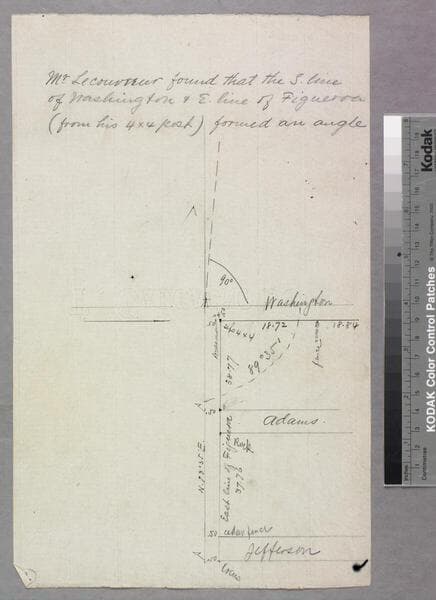 Mr Lecouvreur found that the S. line
of Washington & E. line of Figueroa
(from his 4x4 post) formed an angle
90°
Washington
.50
4x4
18.72
18.84
fence
38.77
89° 35'
.50
Adams.
East line of Figueroa
37.76
Post
.50
cedar fence
Jefferson
.50
Kodak
KODAK Color Control Patches